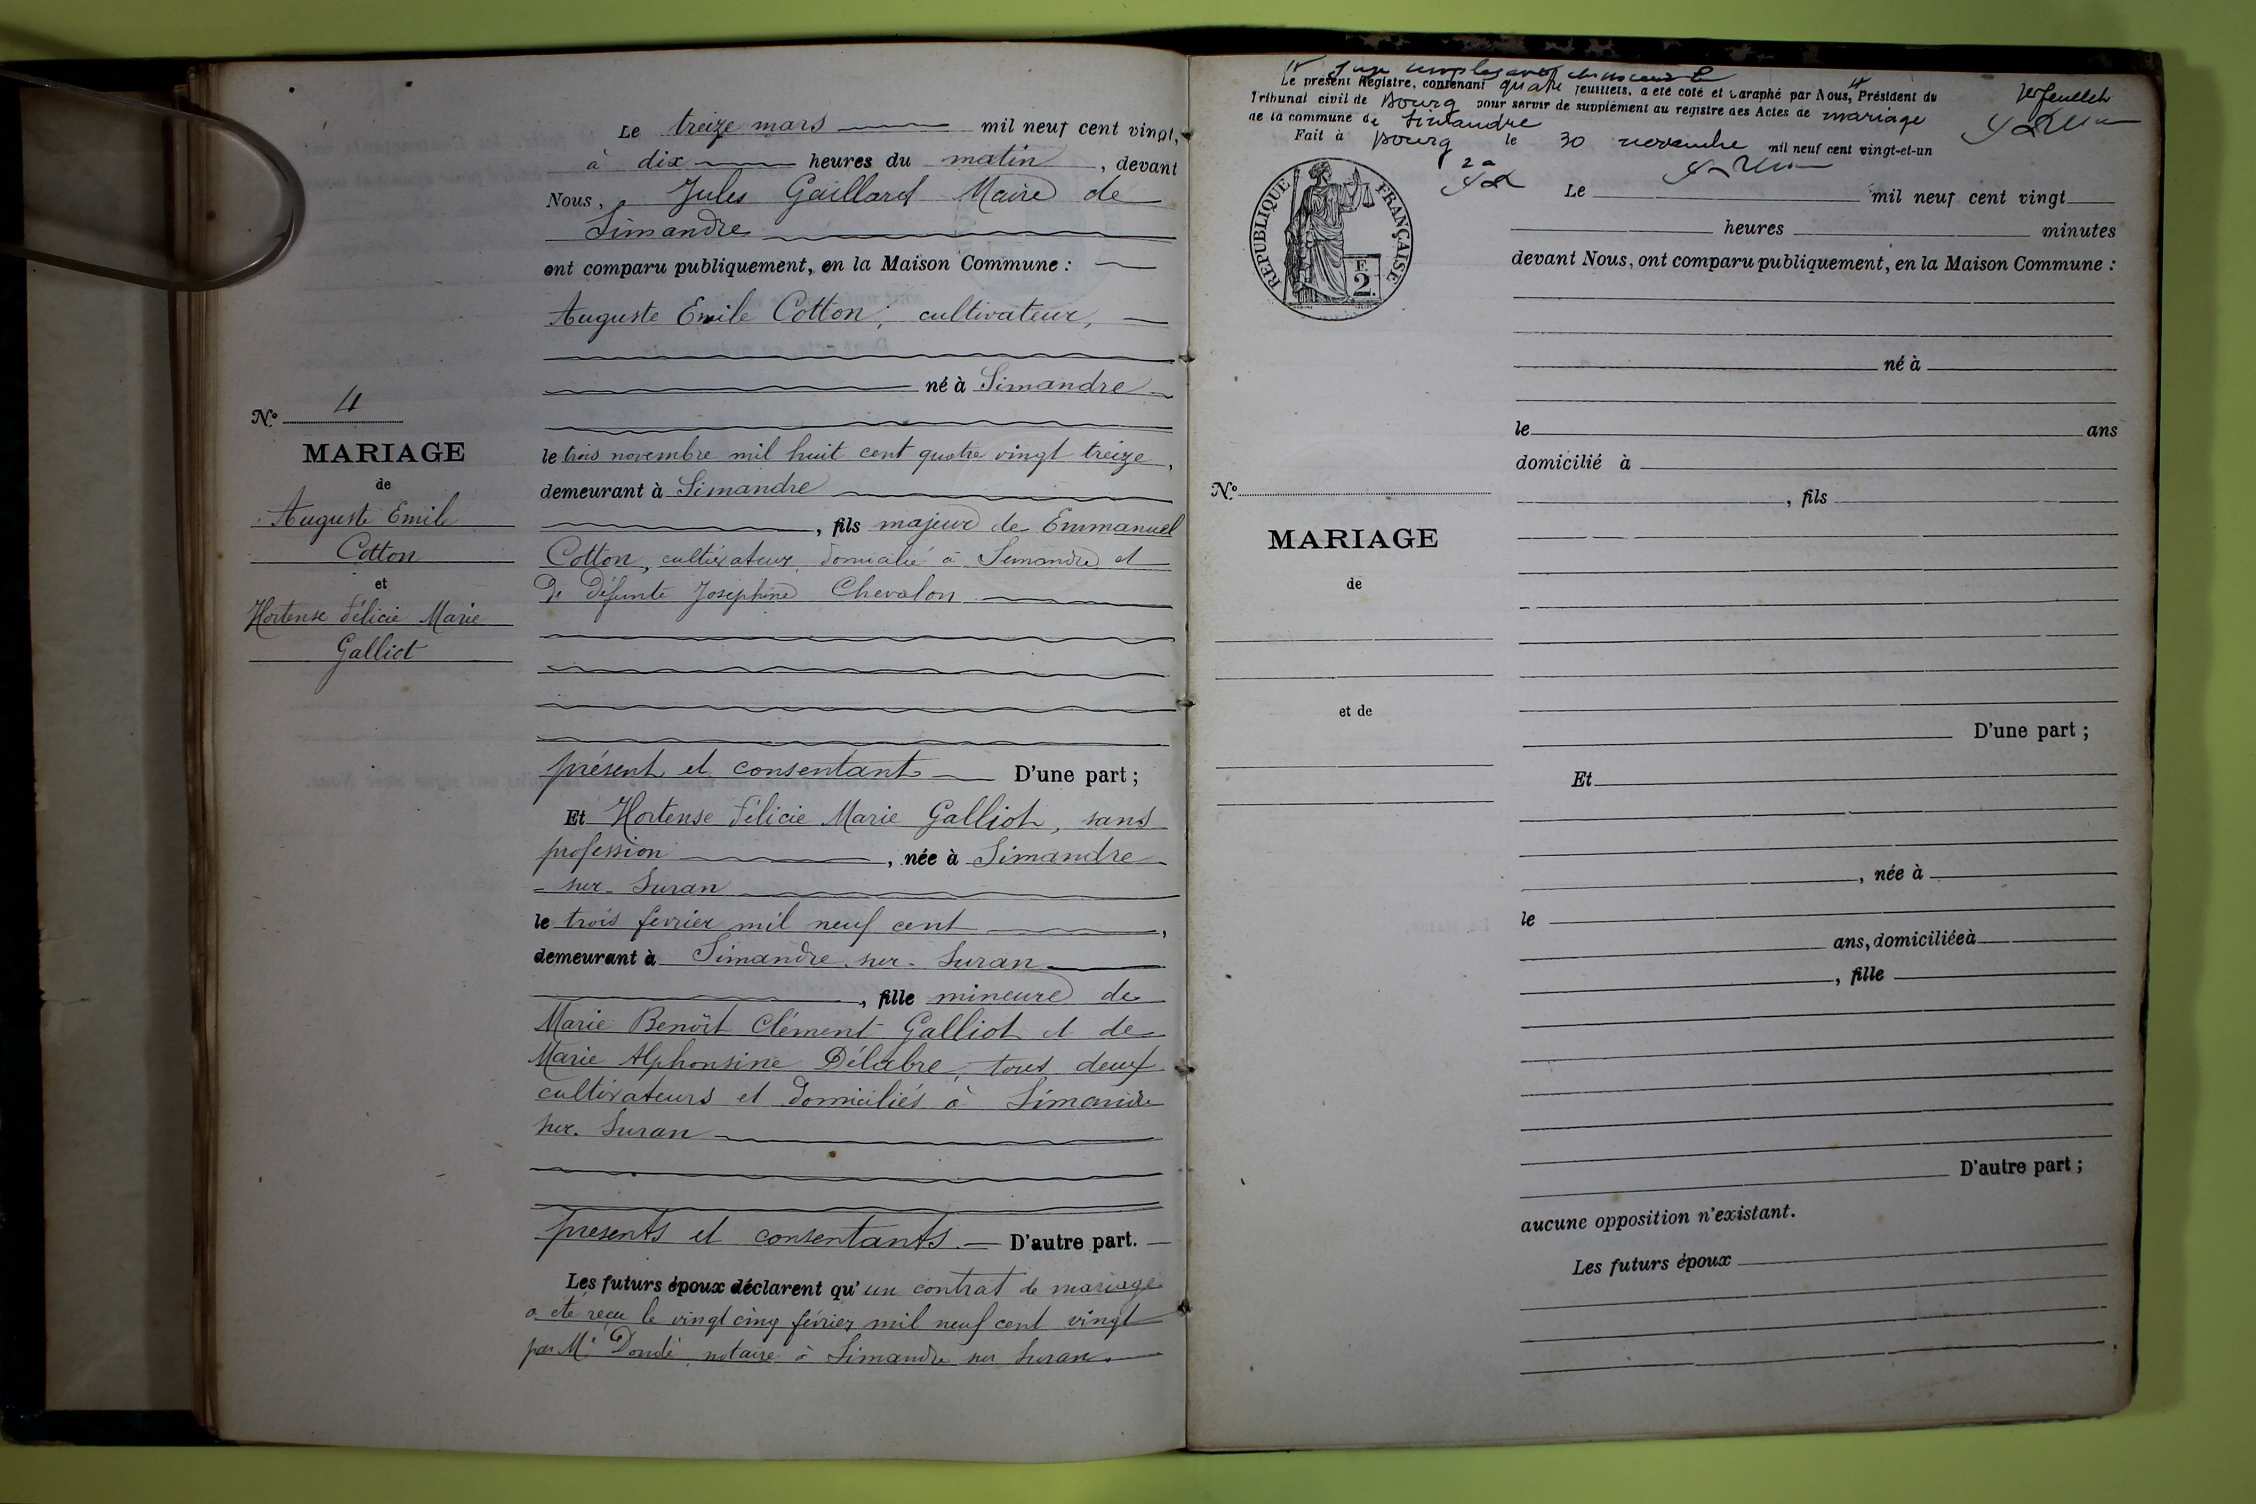 Le treize mars mil neuf cent vingt,
à dix heures du matin, devant
Nous, Jules Gaillard Maire de
Simandre
ont comparu publiquement, en la Maison Commune :
Auguste Emile Cotton, cultivateur,
né à Simandre
le trois novembre mil huit cent quatre vingt treize,
demeurant à Simandre
, fils majeur de Emmanuel
Cotton, cultivateur, domicilié à Simandre et
de défunte Joséphine Chevalon
présent et consentant D'une part ;
Et Hortense Félicie Marie Galliot, sans
profession, née à Simandre
- sur - Suran
le trois février mil neuf cent,
demeurant à Simandre sur - Suran
, fille mineure de
Marie Benoît Clément Galliot et de
Marie Alphonsine Délabre, tous deux
cultivateurs et domiciliés à Simandre
sur. Suran
présents et consentants. D'autre part.
Les futurs époux déclarent qu'un contrat de mariage
a été reçu le vingt cinq février mil neuf cent vingt
par Me notaire à Simandre sur Suran.
No 4
MARIAGE
de
Auguste Emile
Cotton
et
Hortense Félicie Marie
Galliot
Le présent Registre, contenant quatre feuillets, a été coté et paraphé par Nous, Président du
Tribunal civil de Bourg pour servir de supplément au registre des Actes de mariage
de la commune de Simandre
Fait à Bourg le 30 novembre mil neuf cent vingt-et-un
1er feuillet
RÉPUBLIQUE FRANÇAISE
F.
2
Le mil neuf cent vingt
heures minutes
devant Nous, ont comparu publiquement, en la Maison Commune :
né à
le ans
domicilié à
, fils
No
MARIAGE
de
et de
D'une part ;
Et
, née à
le
ans, domiciliée à
, fille
D'autre part ;
aucune opposition n'existant.
Les futurs époux